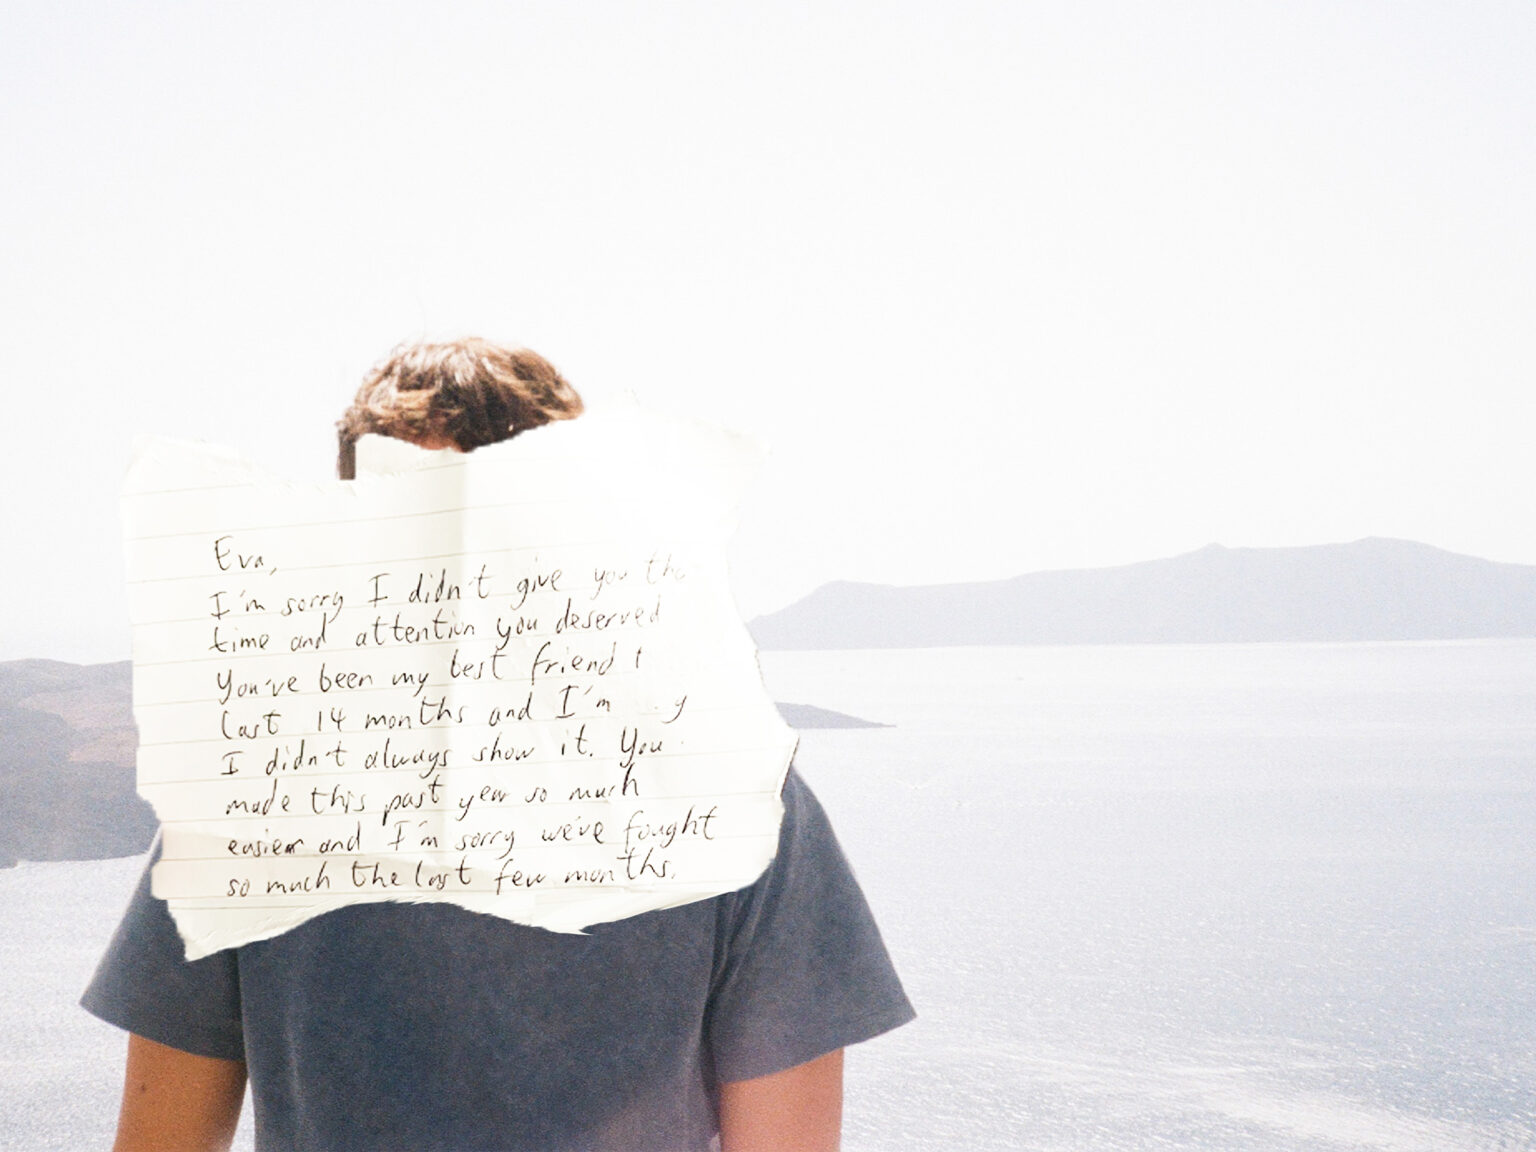 Eva,
I'm sorry I didn't give you the
time and attention you deserved
You've been my best friend
last 14 months and I'm
I didn't always show it. You
made this past year so much
easier and I'm sorry we've fought
so much the last few months.